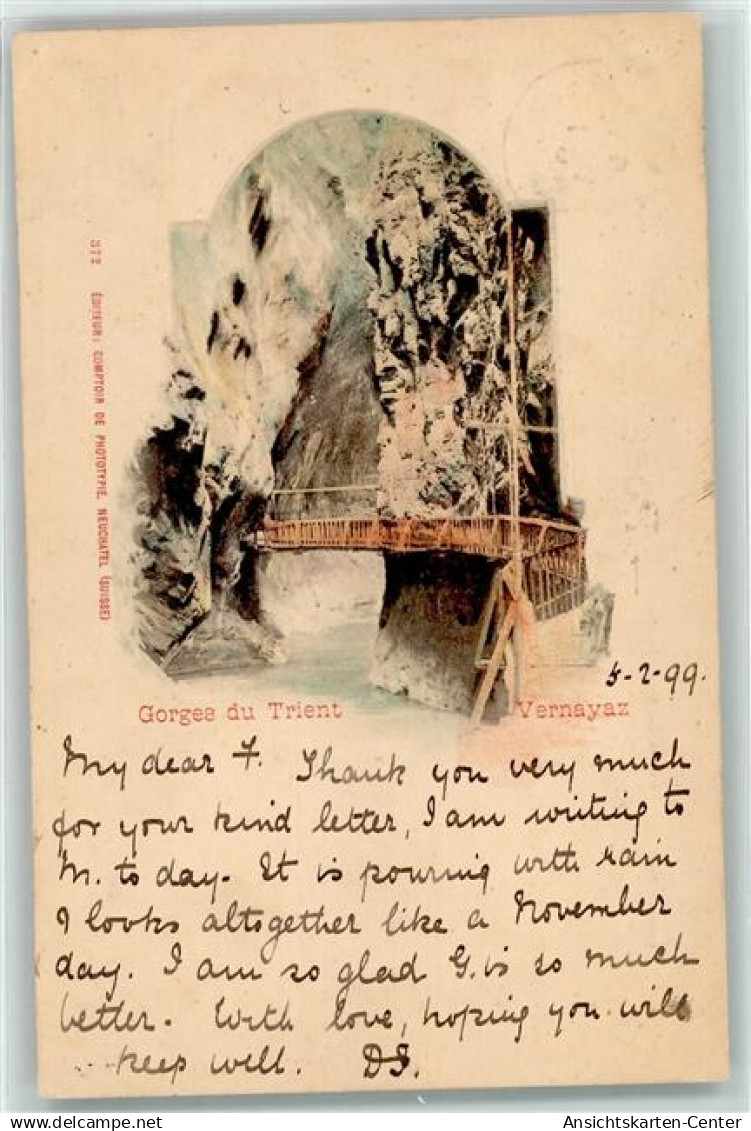 372 ÉDITEUR: COMPTOIR DE PHOTOTYPIE, NEUCHATEL (SUISSE)
5-2-99.
Gorges du Trient Vernayaz
My dear F. Thank you very much
for your kind letter, I am writing to
M. to day. It is pouring with rain
& looks altogether like a November
day. I am so glad G. is so much
better. With love, hoping you will
keep well. DS.
Ansichtskarten-Center